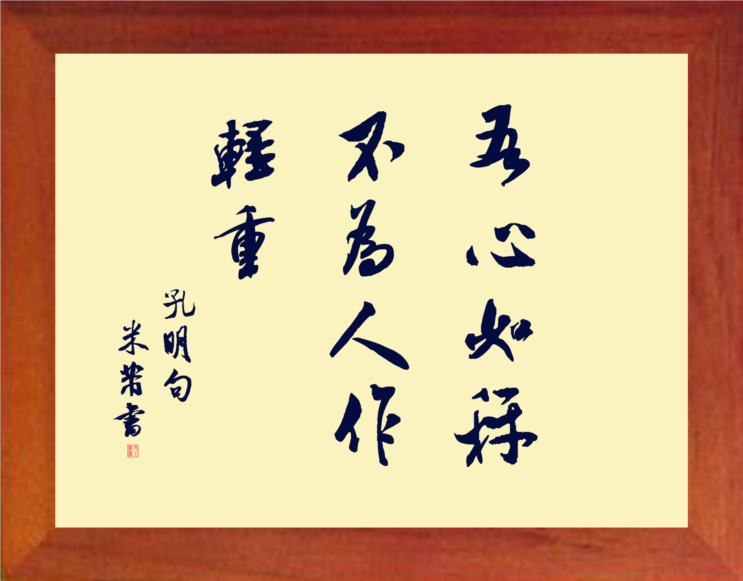 吾心如秤
不為人作
輕重
孔明句
米芾書